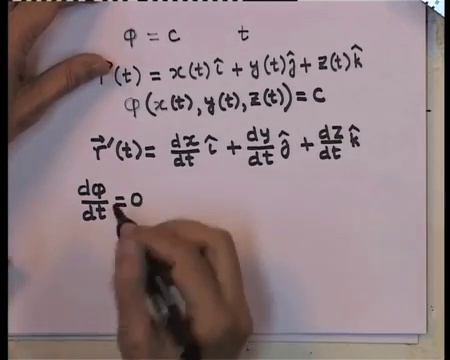 φ = c t
r⃗(t) = x(t)î + y(t)ĵ + z(t)k̂
φ(x(t), y(t), z(t)) = c
r⃗'(t) = dx/dt î + dy/dt ĵ + dz/dt k̂
dφ/dt = 0